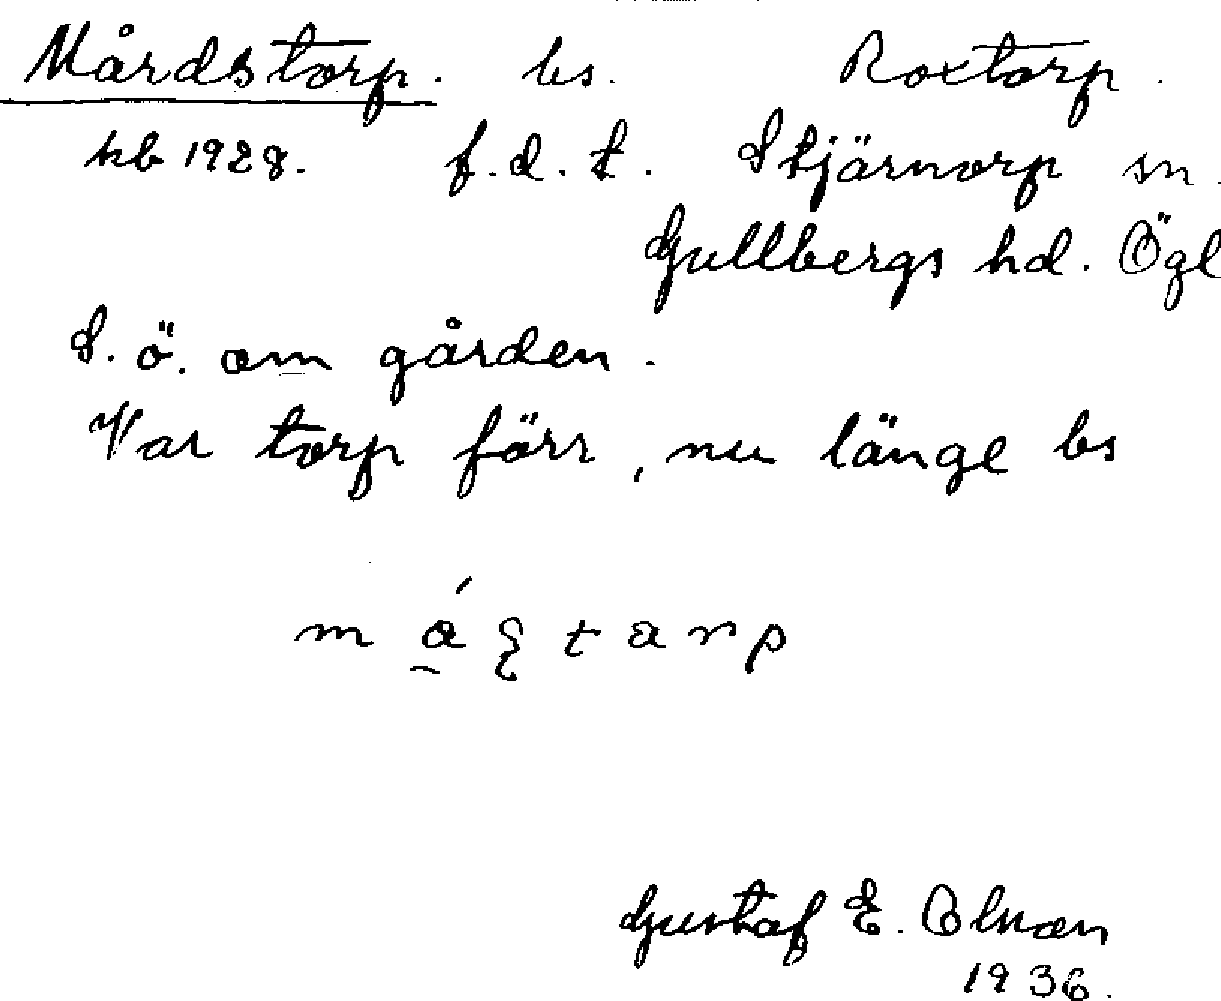 Mårdstorp. bs. Roxtorp.
kb 1928. f.d.t. Stjärnorp sn.
Gullbergs hd. Ögl
S. ö. om gården.
Var torp förr, nu länge bs
Gustaf E. Olson
1936.